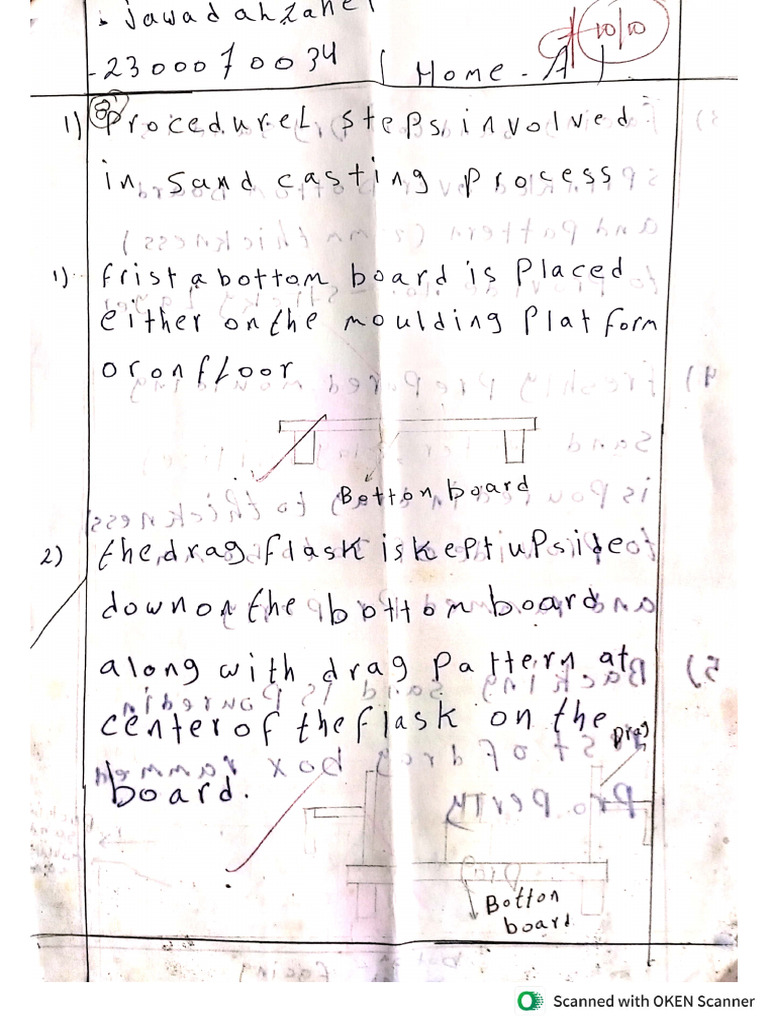 Jawad ahzane
-230007 0034 ( Home - A )
10/10
1) Procedurel steps involved
in sand casting process
1) frist a bottom board is Placed
either on the moulding Platform
or on floor
Botton board
2) the drag flask is kept upside
down on the bottom board
along with drag Pattern at
center of the flask on the
board.
Drag
Botton
board
Scanned with OKEN Scanner